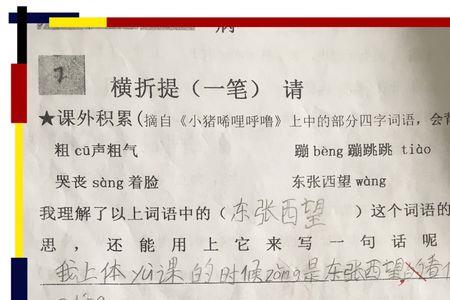 横折提（一笔） 请
★课外积累(摘自《小猪唏哩呼噜》上中的部分四字词语，会背
粗 cū声粗气 蹦 bèng 蹦跳跳 tiào
哭丧 sàng 着脸 东张西望 wàng
我理解了以上词语中的（东张西望）这个词语的
思，还能用上它来写一句话呢
我上体yù课的时候zǒng是东张西望的看